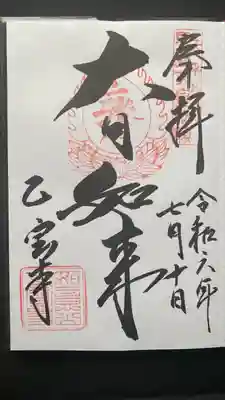 奉拝
令和六年
七月十日
大日如来
乙宝寺